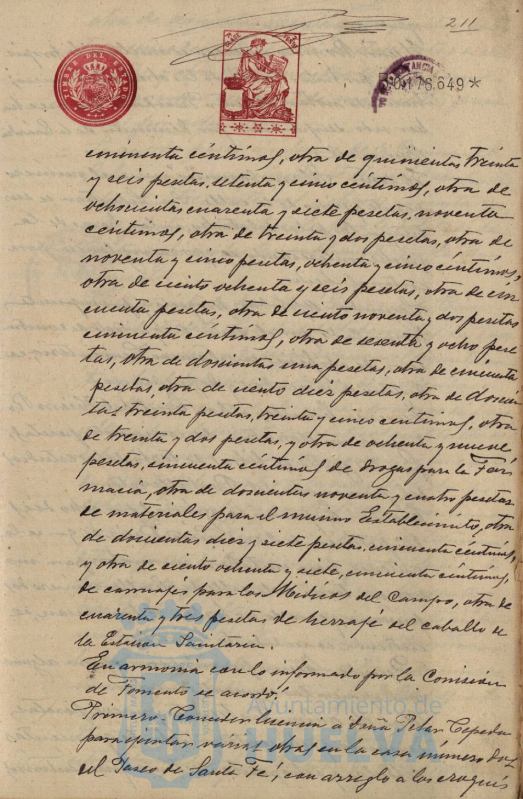 211
TIMBRE DEL ESTADO
0.176.649*
cincuenta céntimos, otra de quinientas treinta
y seis pesetas, setenta y cinco céntimos, otra de
ochocientas cuarenta y siete pesetas, noventa
céntimos, otra de treinta y dos pesetas, otra de
noventa y cinco pesetas, ochenta y cinco céntimos,
otra de ciento ochenta y seis pesetas, otra de cin
cuenta pesetas, otra de ciento noventa y dos pesetas
cincuenta céntimos, otra de sesenta y ocho pese
tas, otra de doscientas una pesetas, otra de cincuenta
pesetas, otra de ciento diez pesetas, otra de doscien
tas treinta pesetas, treinta y cinco céntimos, otra
de treinta y dos pesetas, y otra de ochenta y nueve
pesetas, cincuenta céntimos de drogas para la Far
macia, otra de doscientas noventa y cuatro pesetas
de materiales para el mismo Establecimiento, otra
de doscientas diez y siete pesetas, cincuenta céntimos,
y otra de ciento ochenta y siete, cincuenta céntimos,
de carruajes para los Médicos del Campo, otra de
cuarenta y tres pesetas de herraje del caballo de
la Estación Sanitaria.
En armonía con lo informado por la Comisión
de Fomento se acordó:
Primero: Conceder licencia a Doña Pilar Cepeda
para ejecutar varias obras en la casa número dos
del Paseo de Santa Fé, con arreglo a los croquis
Ayuntamiento de
HUELVA